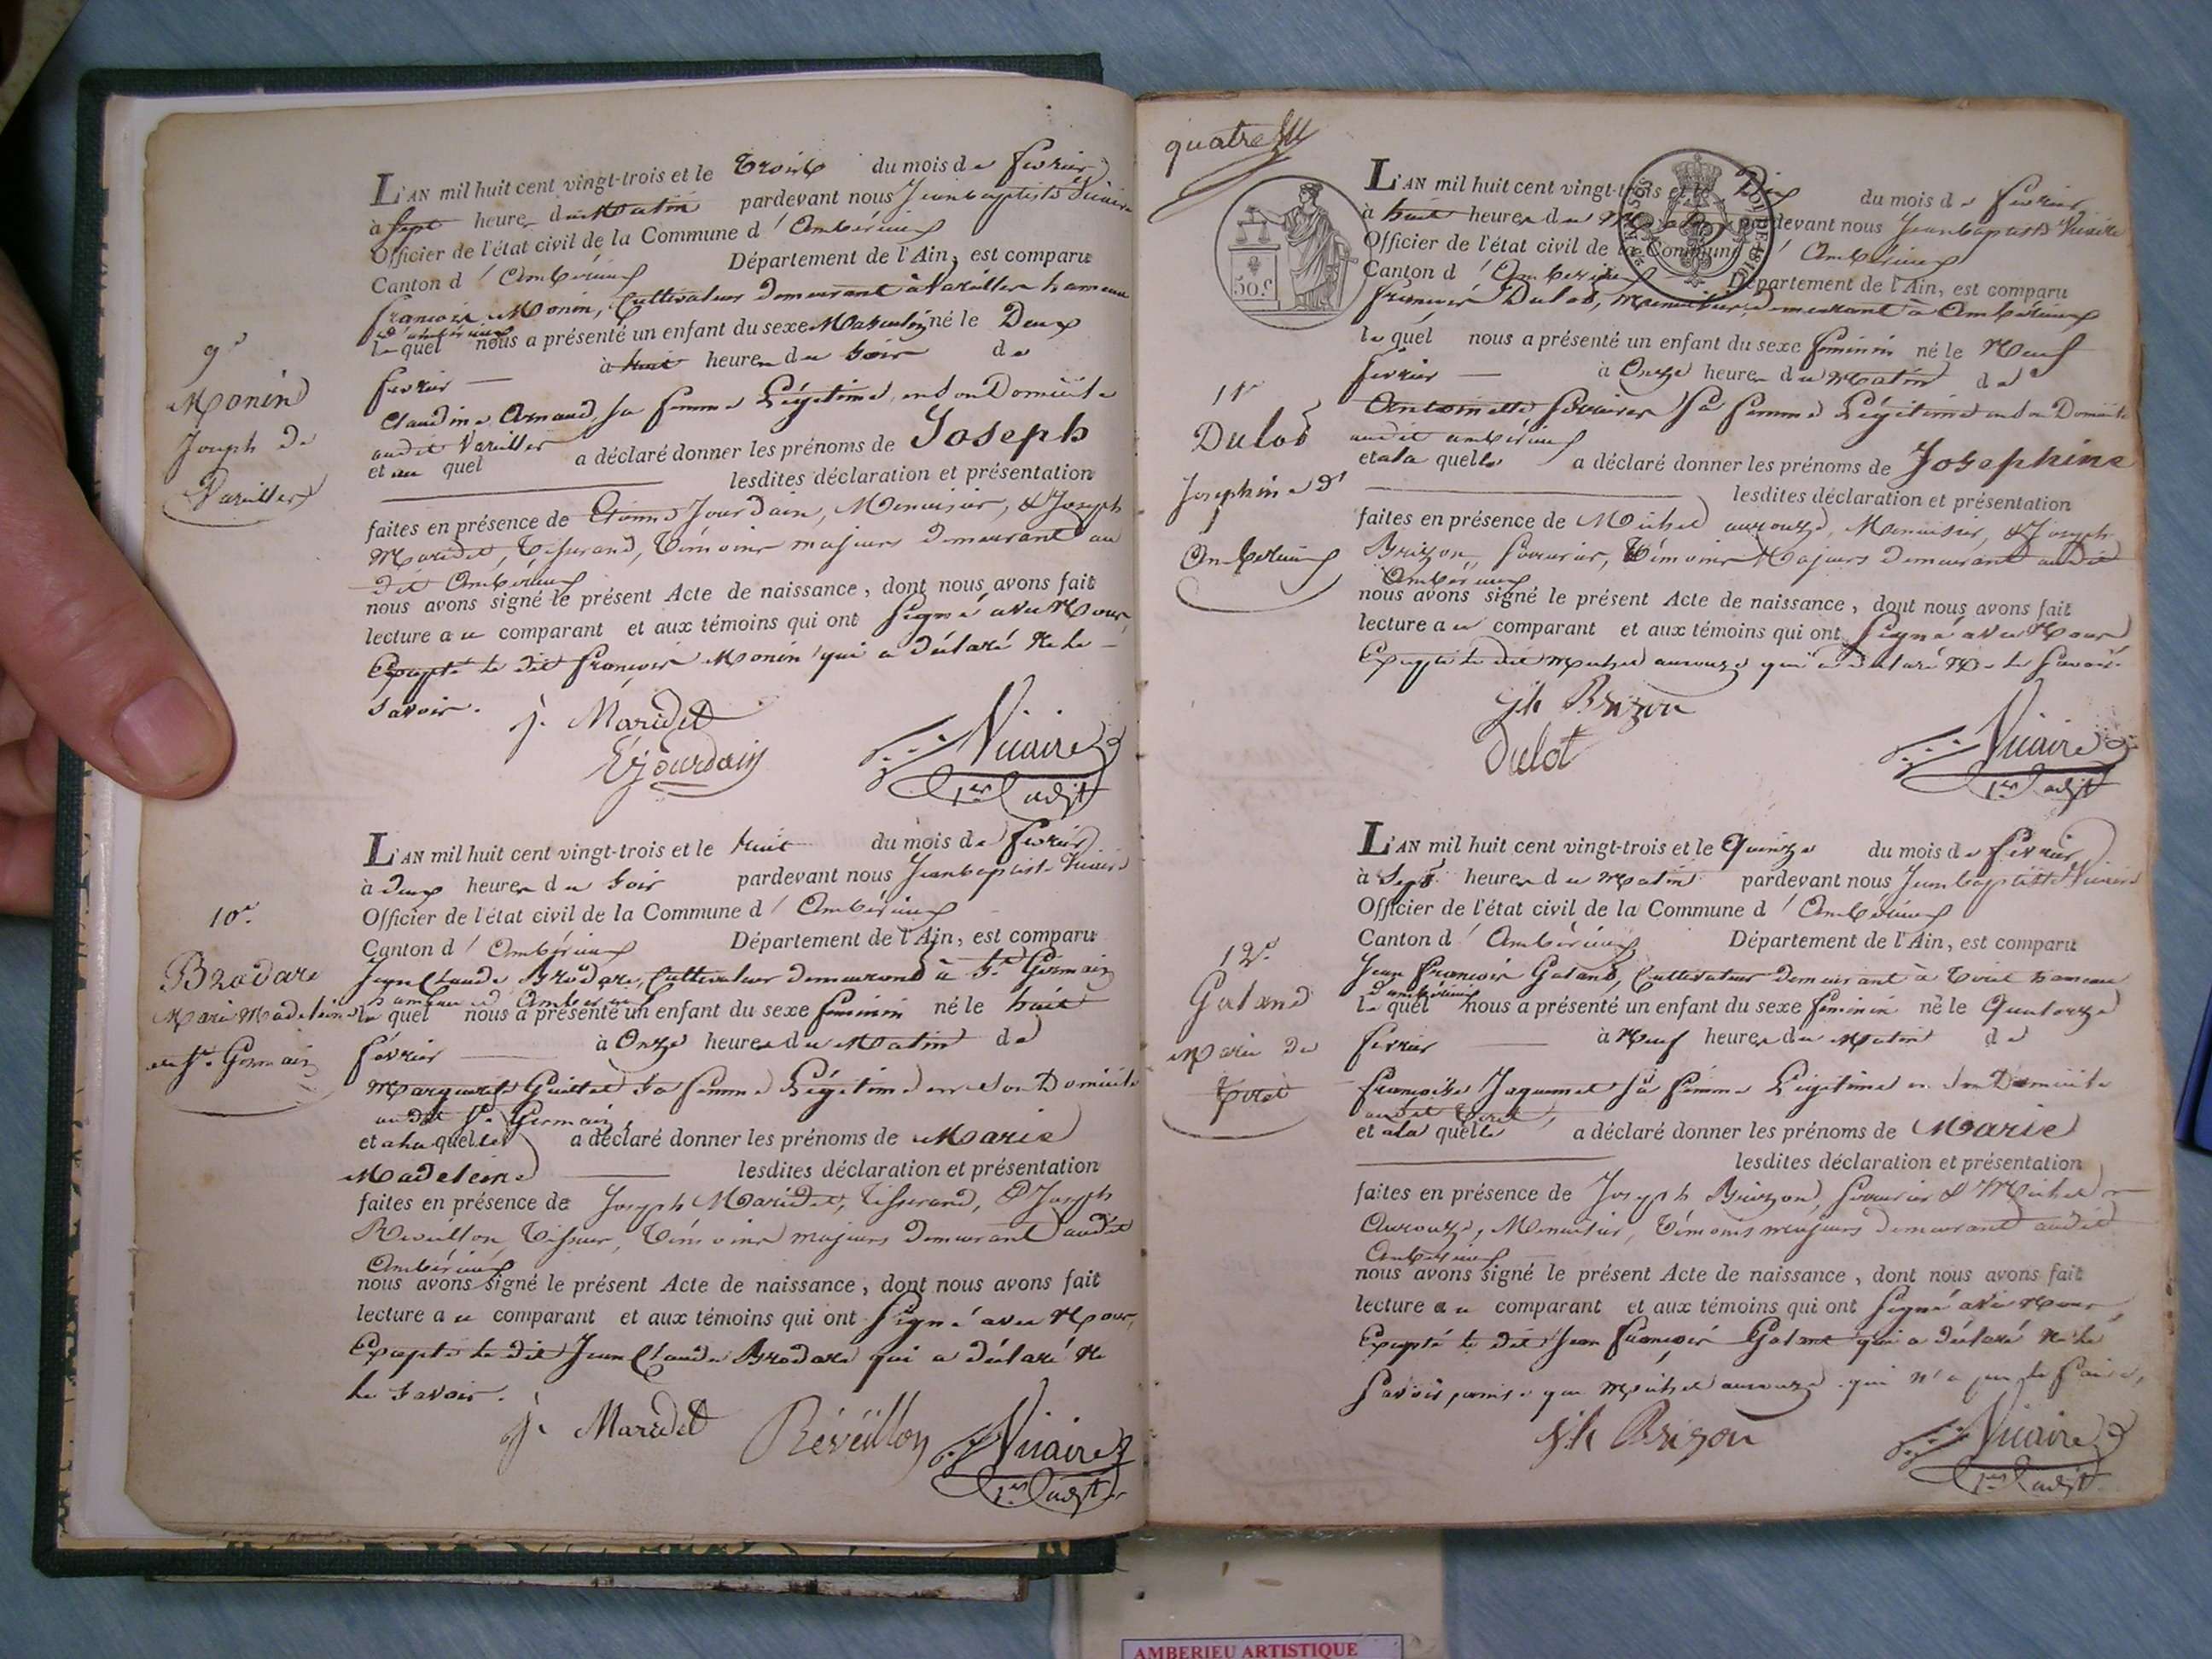 L'AN mil huit cent vingt-trois et le Trois du mois de fevrier
à Sept heures du Matin pardevant nous Jeanbaptiste Vicaire
Officier de l'état civil de la Commune d'Ambérieux
Canton d'Ambérieux Département de l'Ain, est comparu
françois Monin, Cultivateur demeurant à Vareilles hameau
d'ambérieux
lequel nous a présenté un enfant du sexe Masculin né le Deux
fevrier à huit heures du Soir de
Claudine Arnaud, sa femme Légitime, en son Domicile
audit Vareilles
et au quel a déclaré donner les prénoms de Joseph
lesdites déclaration et présentation
faites en présence de Etienne Jourdain, Menuisier, & Joseph
Maridet, Tisserand, Témoins majeurs demeurant au
dit Ambérieux
nous avons signé le présent Acte de naissance, dont nous avons fait
lecture au comparant et aux témoins qui ont Signé avec Nous,
Excepté le dit françois Monin qui a déclaré Ne le
Savoir.
j. Maridet
E jourdain
Vicaire
1er adjt
9e
Monin
Joseph de
Vareilles
L'AN mil huit cent vingt-trois et le huit du mois de fevrier
à deux heures du Soir pardevant nous Jeanbaptiste Vicaire
Officier de l'état civil de la Commune d'Ambérieux
Canton d'Ambérieux Département de l'Ain, est comparu
Jean Claude Brodare, Cultivateur demeurand à St. Germain
hameau d'Amberieux
le quel nous a présenté un enfant du sexe feminin né le huit
février à Onze heures du Matin de
Marguerite Guillet Sa femme Légitime en son Domicile
audit St. Germain,
et a la quelle a déclaré donner les prénoms de Marie
Madeleine lesdites déclaration et présentation
faites en présence de Joseph Maridet, Tisserand, & Joseph
Reveillon Tisseur, Témoins majeurs demeurant audit
Ambérieux
nous avons signé le présent Acte de naissance, dont nous avons fait
lecture au comparant et aux témoins qui ont Signé avec Nous,
Excepté le dit Jean Claude Brodare qui a déclaré Ne
le Savoir.
j. Maridet Réveillon Vicaire
1er adjt
10e.
Brodare
Marie Madeleine
de St. Germain
quatre
50 c
L'AN mil huit cent vingt-trois et le Dix du mois de fevrier
à huit heures du Matin pardevant nous Jeanbaptiste Vicaire
Officier de l'état civil de la Commune d'Ambérieux
Canton d'Amberieux Département de l'Ain, est comparu
françois Dulot, Menuisier, demeurant à Ambérieux
le quel nous a présenté un enfant du sexe feminin né le Neuf
fevrier à Onze heures du Matin de
Antoinette Sa femme Légitime en son Domicile
audit ambérieux
et a la quelle a déclaré donner les prénoms de Josephine
lesdites déclaration et présentation
faites en présence de Michel aurouze, Menuisier, & Joseph
Brizon, Témoins Majeurs demeurant audit
Ambérieux
nous avons signé le présent Acte de naissance, dont nous avons fait
lecture au comparant et aux témoins qui ont Signé avec Nous
Excepté le dit Michel aurouze qui a déclaré Ne le Savoir.
jh Brizon
Dulot
Vicaire
1er adjt
11e
Dulot
Josephine d'
Amberieux
L'AN mil huit cent vingt-trois et le Quinze du mois de fevrier
à Sept heures du Matin pardevant nous Jeanbaptiste Vicaire
Officier de l'état civil de la Commune d'Ambérieux
Canton d'Ambérieux Département de l'Ain, est comparu
Jean François Galand, Cultivateur demeurant à Tiret hameau
d'ambérieux
le quel nous a présenté un enfant du sexe feminin né le Quatorze
fevrier à Neuf heures du Matin de
françoise Jaquemet sa femme Légitime en son Domicile
audit Tiret,
et a la quelle a déclaré donner les prénoms de Marie
lesdites déclaration et présentation
faites en présence de Joseph Brizon, & Michel
Aurouze, Menuisier, Témoins majeurs demeurant audit
Amberieux
nous avons signé le présent Acte de naissance, dont nous avons fait
lecture au comparant et aux témoins qui ont Signé avec Nous,
Excepté le dit Jean françois Galand qui a déclaré Ne le
Savoir, que Michel aurouze qui n'a pu le faire,
jh Brizon Vicaire
1er adjt
12e
Galand
Marie de
Tiret
AMBERIEU ARTISTIQUE